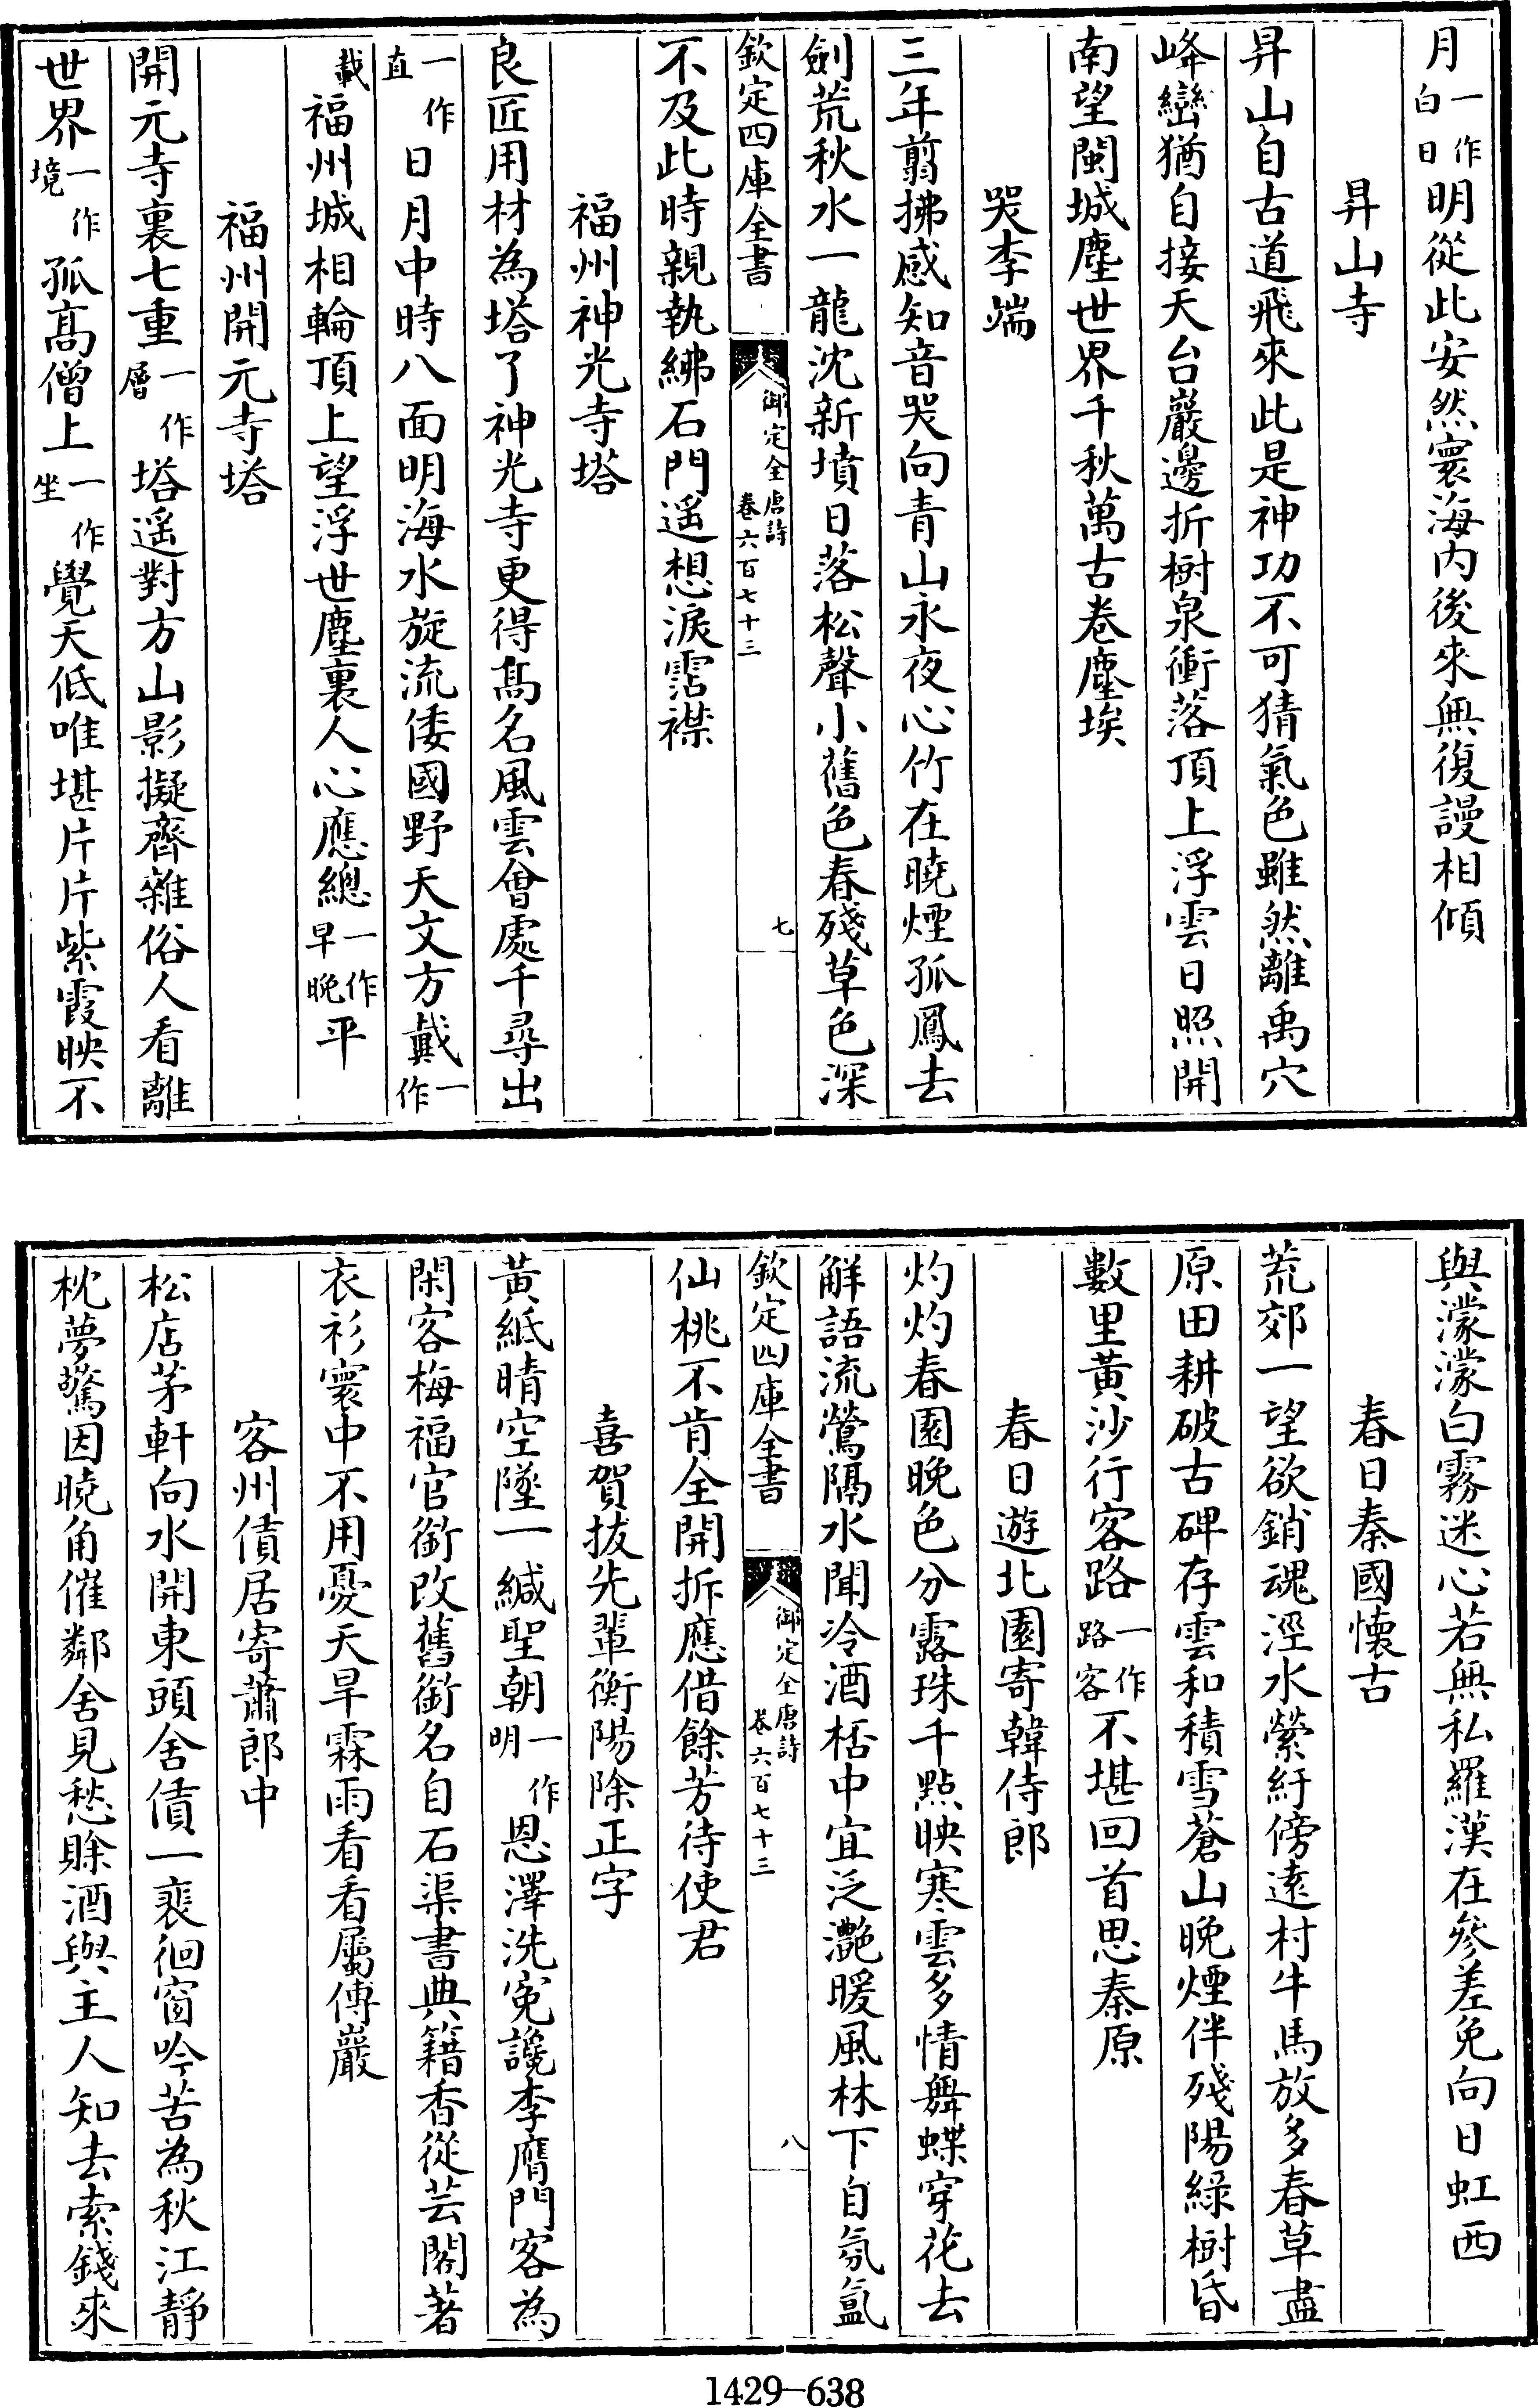 月一作白日明從此安然寰海内後來無復謾相傾
昇山寺
昇山自古道飛來此是神功不可猜氣色雖然離禹穴
峰巒猶自接天台巖邊折樹泉衝落頂上浮雲日照開
南望閩城塵世界千秋萬古卷塵埃
哭李端
三年翦拂感知音哭向青山永夜心竹在曉煙孤鳳去
劍荒秋水一龍沈新墳日落松聲小舊色春殘草色深
欽定四庫全書 御定全唐詩卷六百七十三 七
不及此時親執紼石門遥想淚霑襟
福州神光寺塔
良匠用材為塔了神光寺更得髙名風雲會處千尋出
一作直日月中時八面明海水旋流倭國野天文方戴一作
載福州城相輪頂上望浮世塵裏人心應總一作早晚平
福州開元寺塔
開元寺裏七重一作層塔遥對方山影擬齊雜俗人看離
世界一作境孤髙僧上一作坐覺天低唯堪片片紫霞映不
與濛濛白霧迷心若無私羅漢在參差免向日虹西
春日秦國懷古
荒郊一望欲銷魂涇水縈紆傍遠村牛馬放多春草盡
原田耕破古碑存雲和積雪蒼山晚煙伴殘陽緑樹昏
數里黄沙行客路一作路客不堪回首思秦原
春日遊北園寄韓侍郎
灼灼春園晚色分露珠千點映寒雲多情舞蝶穿花去
解語流鶯隔水聞冷酒桮中宜泛灔暖風林下自氛氲
欽定四庫全書 御定全唐詩卷六百七十三 八
仙桃不肯全開拆應借餘芳待使君
喜賀拔先輩衡陽除正字
黄紙晴空墜一緘聖朝一作明恩澤洗寃讒李膺門客為
閑客梅福官銜改舊銜名自石渠書典籍香從芸閣著
衣衫寰中不用憂天旱霖雨看看屬傅巖
客州賃居寄蕭郎中
松店茅軒向水開東頭舍賃一裵徊窗吟苦為秋江靜
枕夢驚因曉角催鄰舍見愁賒酒與主人知去索錢來
1429—638